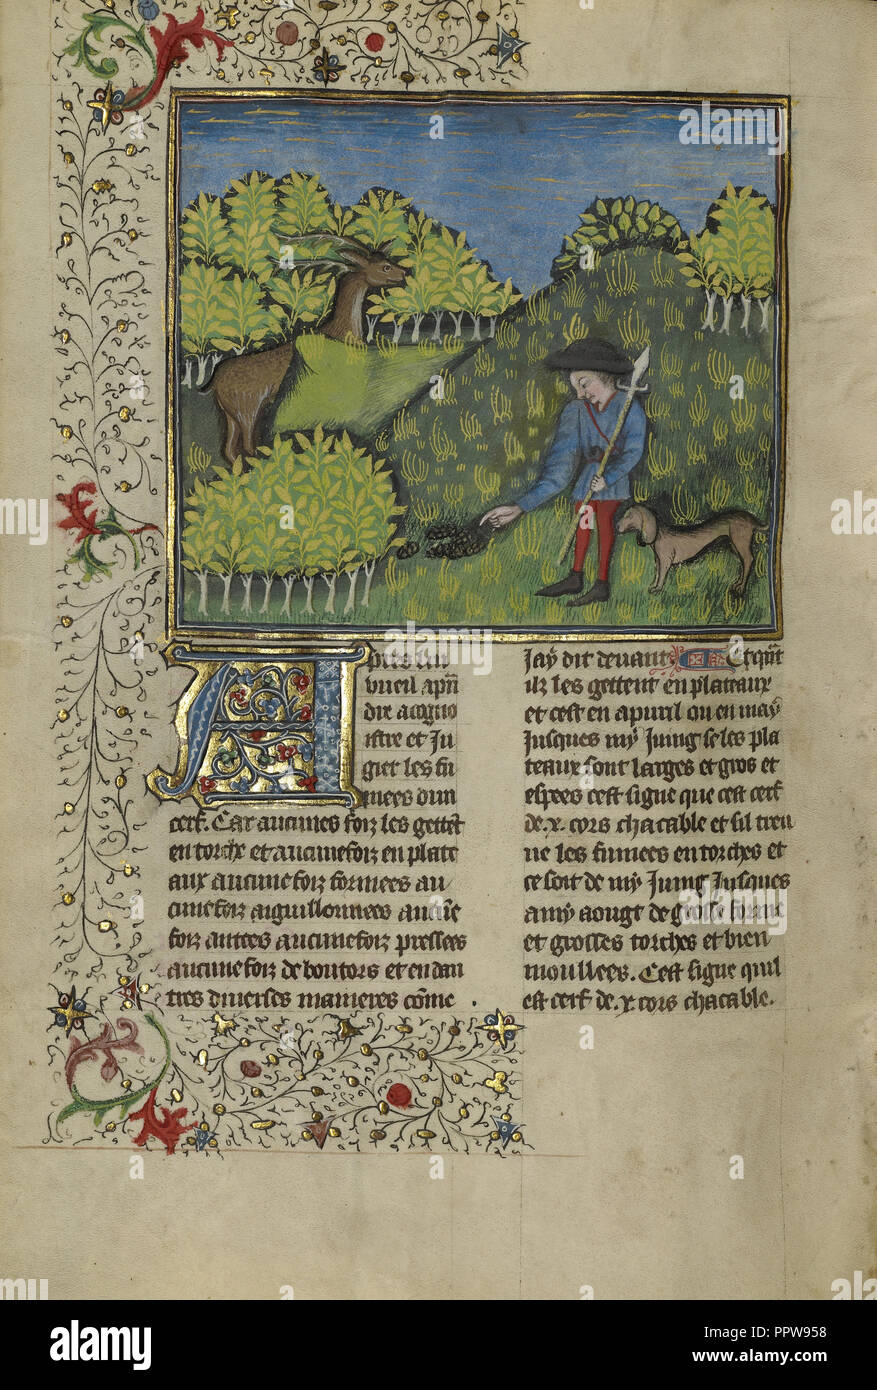 A
pres lui
vueil apñ
dre acogno
istre et Ju
gier les fu
mees dun
cerf. Car aucunes foiz les gettēt
en torche et aucunefoiz en plate
aux aucune foiz formees au
cune foiz aiguillonnees aucūe
foiz autees aucunefoiz pressees
aucune foiz deboutois et en dau
tres diverses manieres cōme .
Jaÿ dit devant Et quāt
ilz les gettent en plateaux
et cest en apuril ou en maÿ
Jusques mÿ Juing se les pla
teaux sont larges et gros et
espees cest signe que cest cerf
de .x. cors chacable et sil treu
ve les fumees en torches et
ce soit de mÿ Juing Jusques
amÿ aougt de grosse forme
et grosses torches et bien
moullees. Cest signe quil
est cerf de .x. cors chacable.
alamy
Image ID: PPW958
www.alamy.com